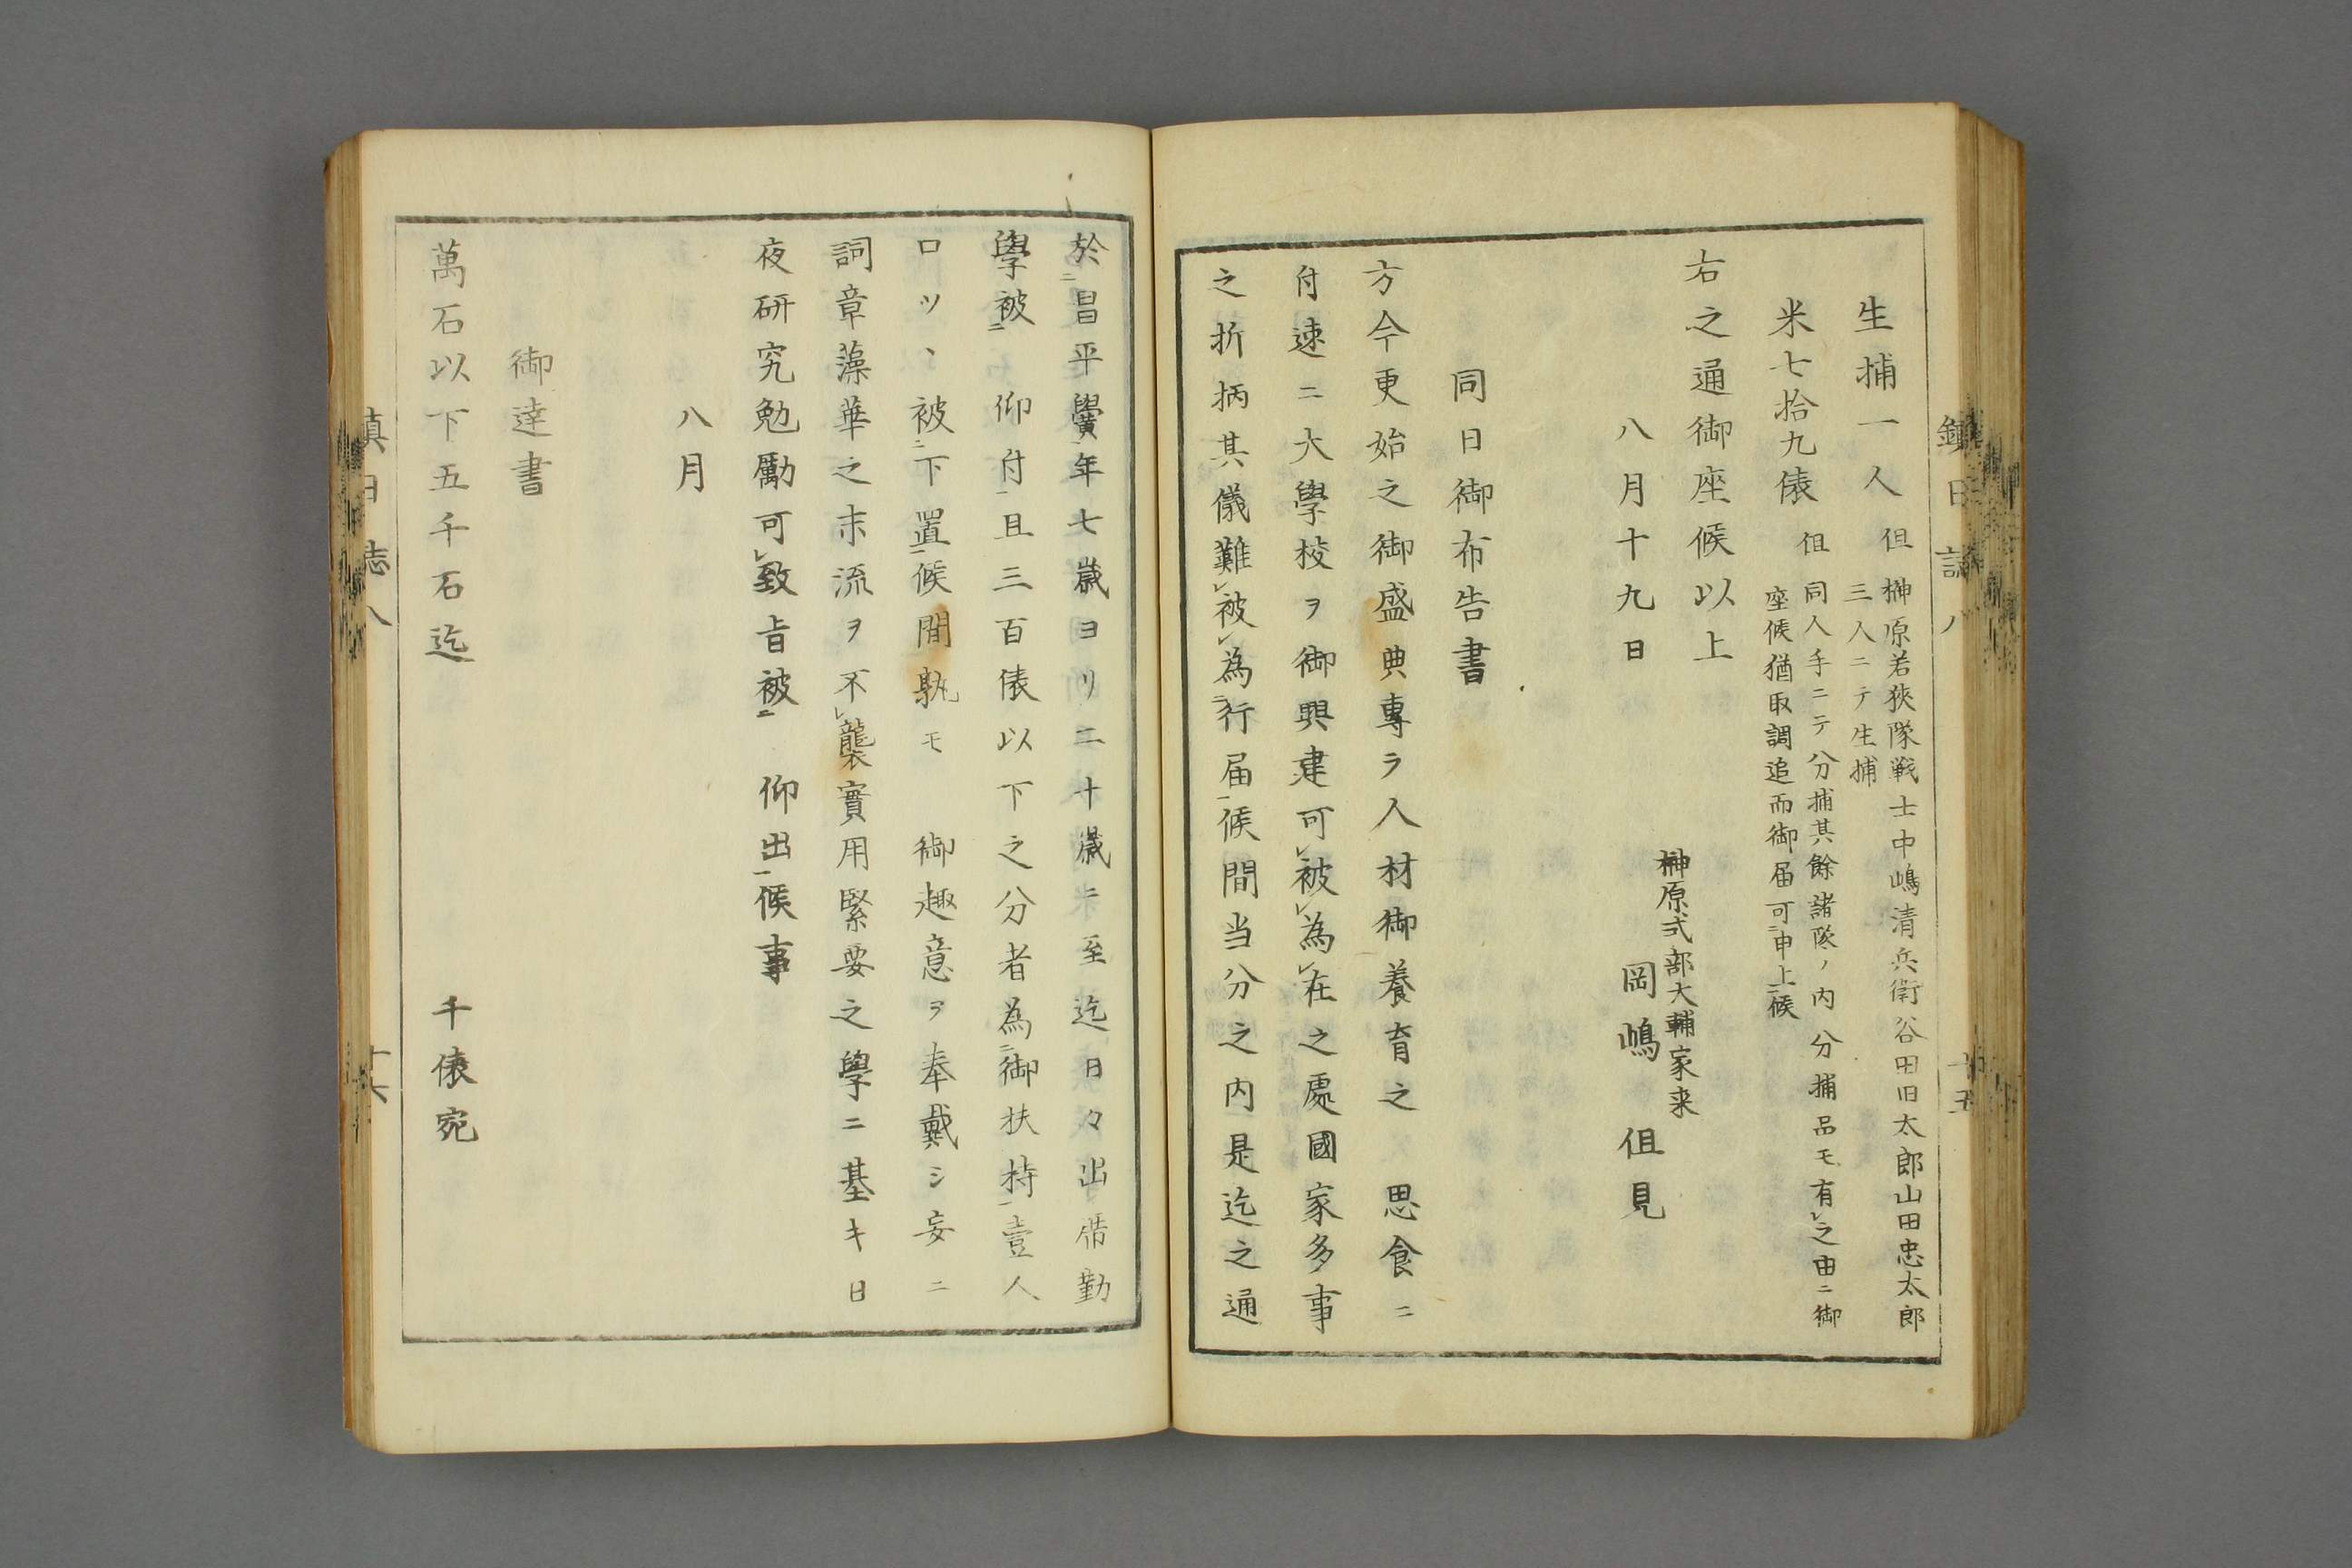 生捕一人 但 榊原若狹隊戦士中嶋清兵衛谷田旧太郎山田忠太郎
三人ニテ生捕
米七拾九俵 但 同人手ニテ分捕其餘諸隊ノ内分捕品モ有レ之由ニ御
座候猶取調追而御届可二申上一候
右之通御座候以上
榊原式部大輔家来
八月十九日 岡嶋但見
同日御布告書
方今更始之御盛典專ラ人材御養育之 思食ニ
付速ニ大學校ヲ御興建可レ被レ為レ在之處國家多事
之折柄其儀難レ被レ為二行届一候間当分之内是迄之通
於二昌平黌一年七歳ヨリ二十歳ニ至迄日々出席勤
學被二 仰付一且三百俵以下之分者為二御扶持一壹人
口ツヽ被二下置一候間孰モ 御趣意ヲ奉戴シ妄ニ
詞章藻華之末流ヲ不レ襲實用緊要之學ニ基キ日
夜研究勉勵可レ致旨被二 仰出一候事
八月
御達書
萬石以下五千石迄 千俵宛
鎮日誌八 十五
鎮日志八 十六